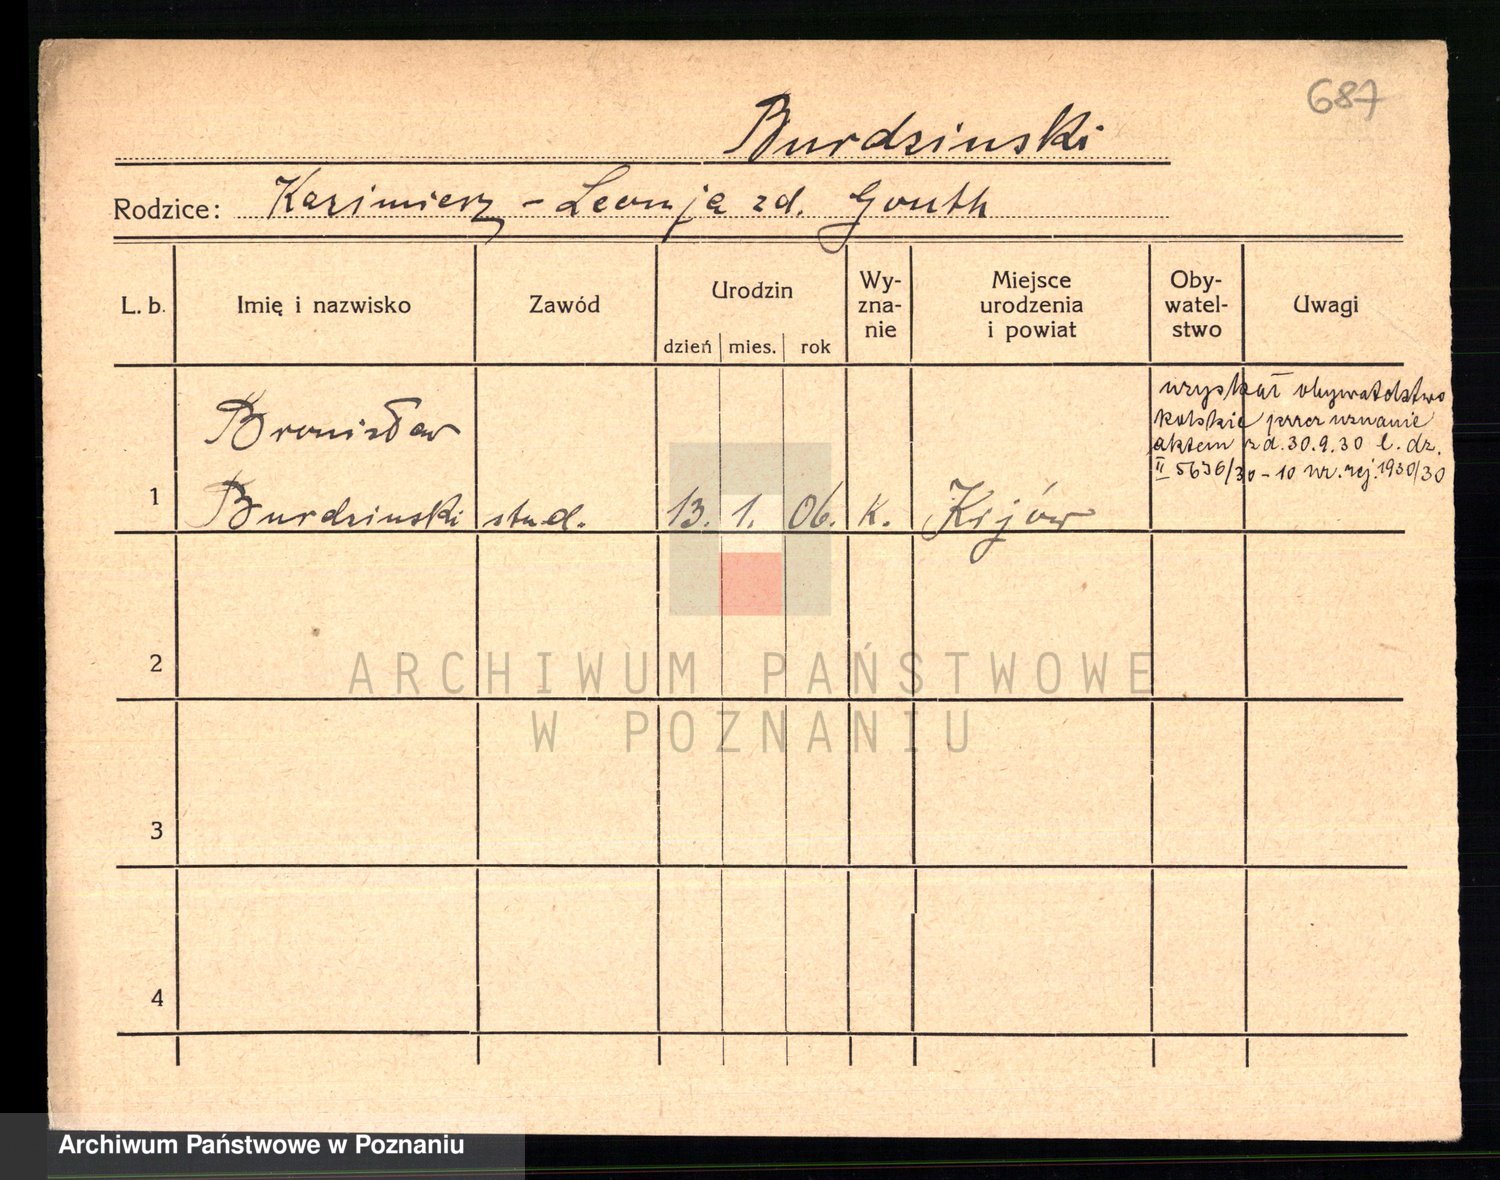 687
Burdzinski
Rodzice: Kazimierz - Leonja zd. Gouth
L. b. Imię i nazwisko Zawód Urodzin dzień mies. rok Wy-zna-nie Miejsce urodzenia i powiat Oby-watel-stwo Uwagi
uzyskał obywatelstwo
polskie przez uznanie
aktem z d. 30.9.30 l. dz.
II 5636/30 - 10 nr. rej. 1930/30
Bronisław
1 Burdzinski stud. 13. 1. 06. k. Kijów
2
ARCHIWUM PAŃSTWOWE
W POZNANIU
3
4
Archiwum Państwowe w Poznaniu